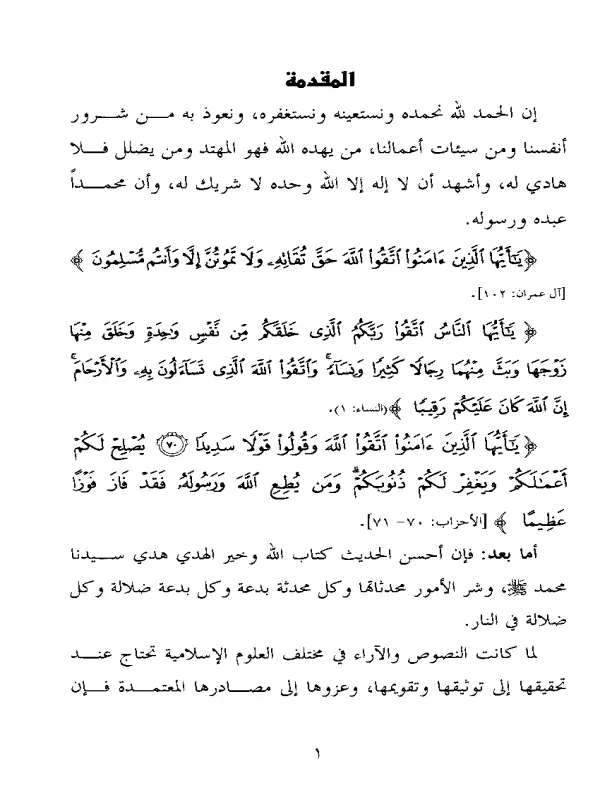 المقدمة
إن الحمد لله نحمده ونستعينه ونستغفره، ونعوذ به مـــن شـــرور
أنفسنا ومن سيئات أعمالنا، من يهده الله فهو المهتد ومن يضلل فـــلا
هادي له، وأشهد أن لا إله إلا الله وحده لا شريك له، وأن محمـــداً
عبده ورسوله.
﴿ يَـٰٓأَيُّهَا ٱلَّذِينَ ءَامَنُواْ ٱتَّقُواْ ٱللَّهَ حَقَّ تُقَاتِهِۦ وَلَا تَمُوتُنَّ إِلَّا وَأَنتُم مُّسۡلِمُونَ ﴾
[آل عمران: ١٠٢].
﴿ يَـٰٓأَيُّهَا ٱلنَّاسُ ٱتَّقُواْ رَبَّكُمُ ٱلَّذِى خَلَقَكُم مِّن نَّفۡسٍ وَٰحِدَةٍ وَخَلَقَ مِنۡهَا
زَوۡجَهَا وَبَثَّ مِنۡهُمَا رِجَالًا كَثِيرًا وَنِسَآءً ۚ وَٱتَّقُواْ ٱللَّهَ ٱلَّذِى تَسَآءَلُونَ بِهِۦ وَٱلۡأَرۡحَامَ ۚ
إِنَّ ٱللَّهَ كَانَ عَلَيۡكُمۡ رَقِيبًا ﴾ (النساء: ١).
﴿ يَـٰٓأَيُّهَا ٱلَّذِينَ ءَامَنُواْ ٱتَّقُواْ ٱللَّهَ وَقُولُواْ قَوۡلًا سَدِيدًا ٧٠ يُصۡلِحۡ لَكُمۡ
أَعۡمَـٰلَكُمۡ وَيَغۡفِرۡ لَكُمۡ ذُنُوبَكُمۡ ۗ وَمَن يُطِعِ ٱللَّهَ وَرَسُولَهُۥ فَقَدۡ فَازَ فَوۡزًا
عَظِيمًا ﴾ [الأحزاب: ٧٠- ٧١].
أما بعد: فإن أحسن الحديث كتاب الله وخير الهدي هدي ســـيدنا
محمد ﷺ، وشر الأمور محدثاتها وكل محدثة بدعة وكل بدعة ضلالة وكل
ضلالة في النار.
لما كانت النصوص والآراء في مختلف العلوم الإسلامية تحتاج عنـــد
تحقيقها إلى توثيقها وتقويمها، وعزوها إلى مصـــادرها المعتمـــدة فـــإن
١